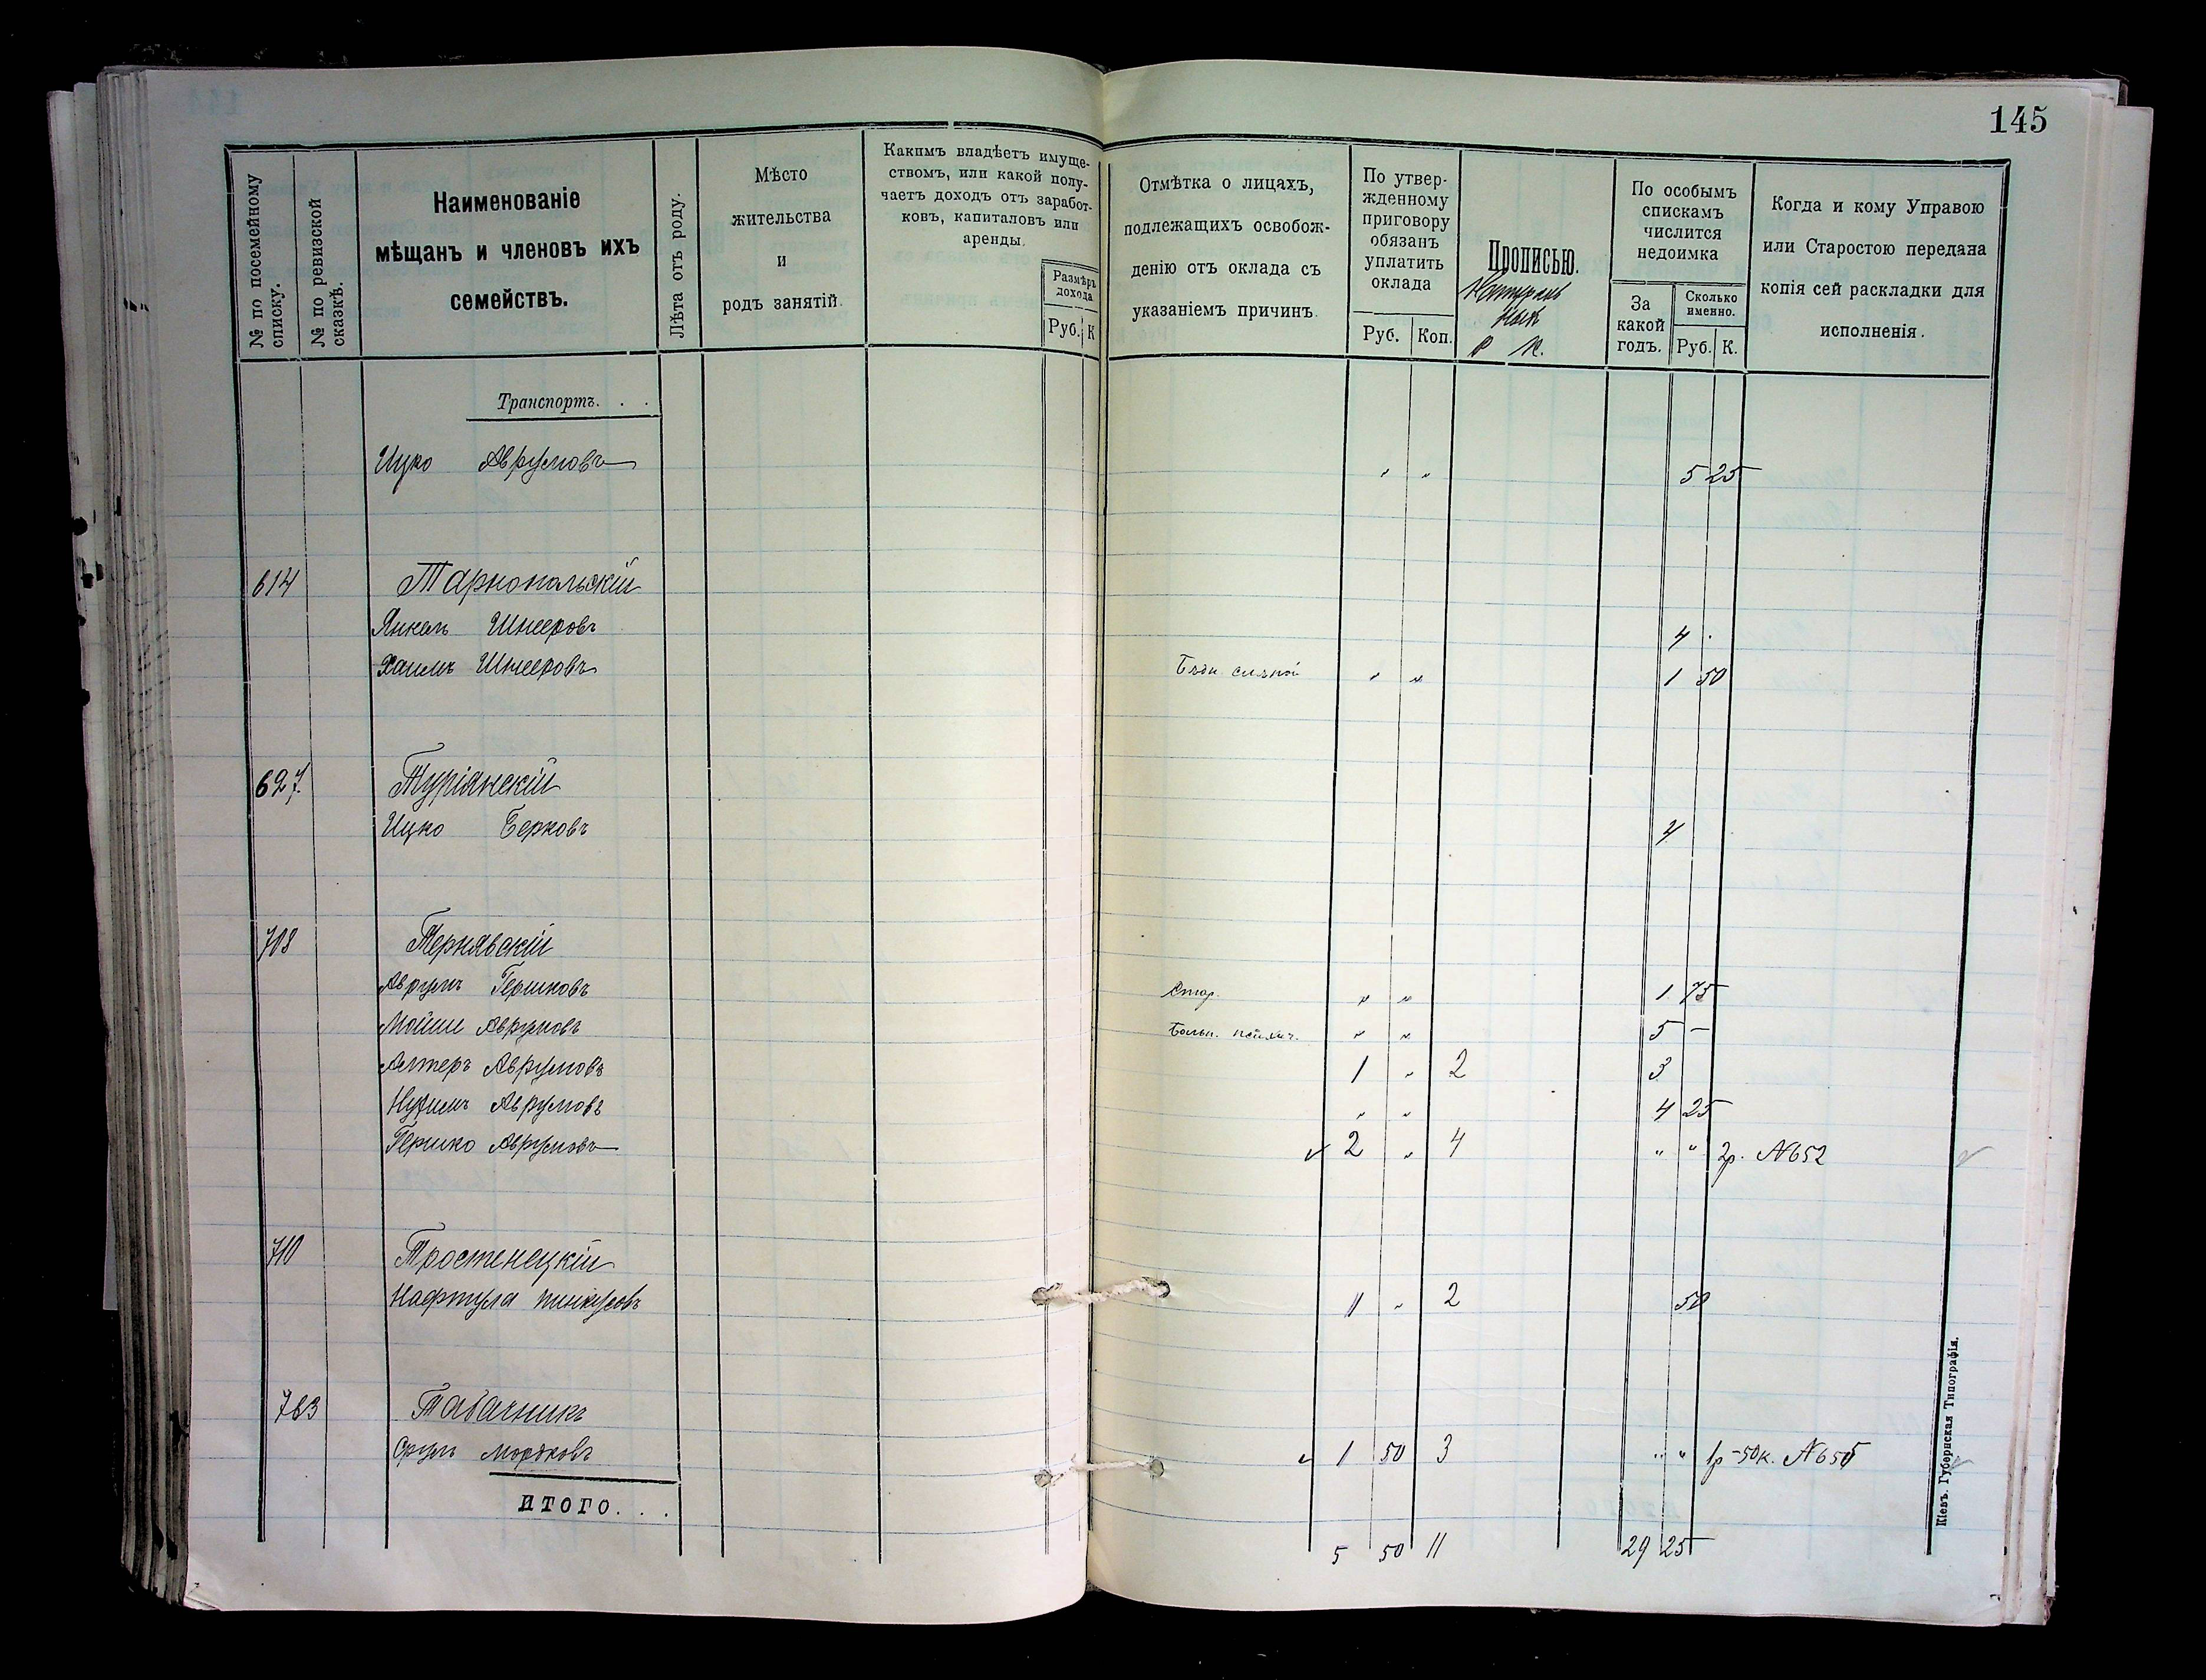 145
№ по посемейному списку.
№ по ревизской сказкѣ.
Наименованіе
мѣщанъ и членовъ ихъ
семействъ.
Лѣта отъ роду.
Мѣсто
жительства
и
родъ занятій.
Какимъ владѣетъ имуще-
ствомъ, или какой полу-
чаетъ доходъ отъ заработ-
ковъ, капиталовъ или
аренды.
Размѣръ
дохода
Руб. К
Отмѣтка о лицахъ,
подлежащихъ освобож-
денію отъ оклада съ
указаніемъ причинъ.
По утвер-
жденному
приговору
обязанъ
уплатить
оклада
Руб. Коп.
Прописью.
Натураль
ный
Р К.
По особымъ
спискамъ
числится
недоимка
За
какой
годъ.
Сколько
именно.
Руб. К.
Когда и кому Управою
или Старостою передана
копія сей раскладки для
исполненія.
Транспортъ. . .
Ицко Аврумовъ " " 5 25
614 Тарнопольскій
Янкель Шнееровъ 4 .
Хаимъ Шнееровъ Бѣдн. слѣпой " " 1 50
627. Туріянскій
Ицко Берковъ 4
708 Тернявскій
Аврумъ Гершковъ Стар. " " 1 75
Мойше Аврумовъ Больн. психич. " " 5 —
Алтеръ Аврумовъ 1 " 2 3
Нухимъ Аврумовъ " " 4 25
Гершко Аврумовъ ✓ 2 " 4 " " 2р. №652
710 Тростенецкій
Нафтула Пинкусовъ 1 " 2 50
763 Табачникъ
Срулъ Мордковъ ✓ 1 50 3 " " 1р-50к. №655
ИТОГО. . .
5 50 11 29 25
Кіевъ. Губернская Типографія.